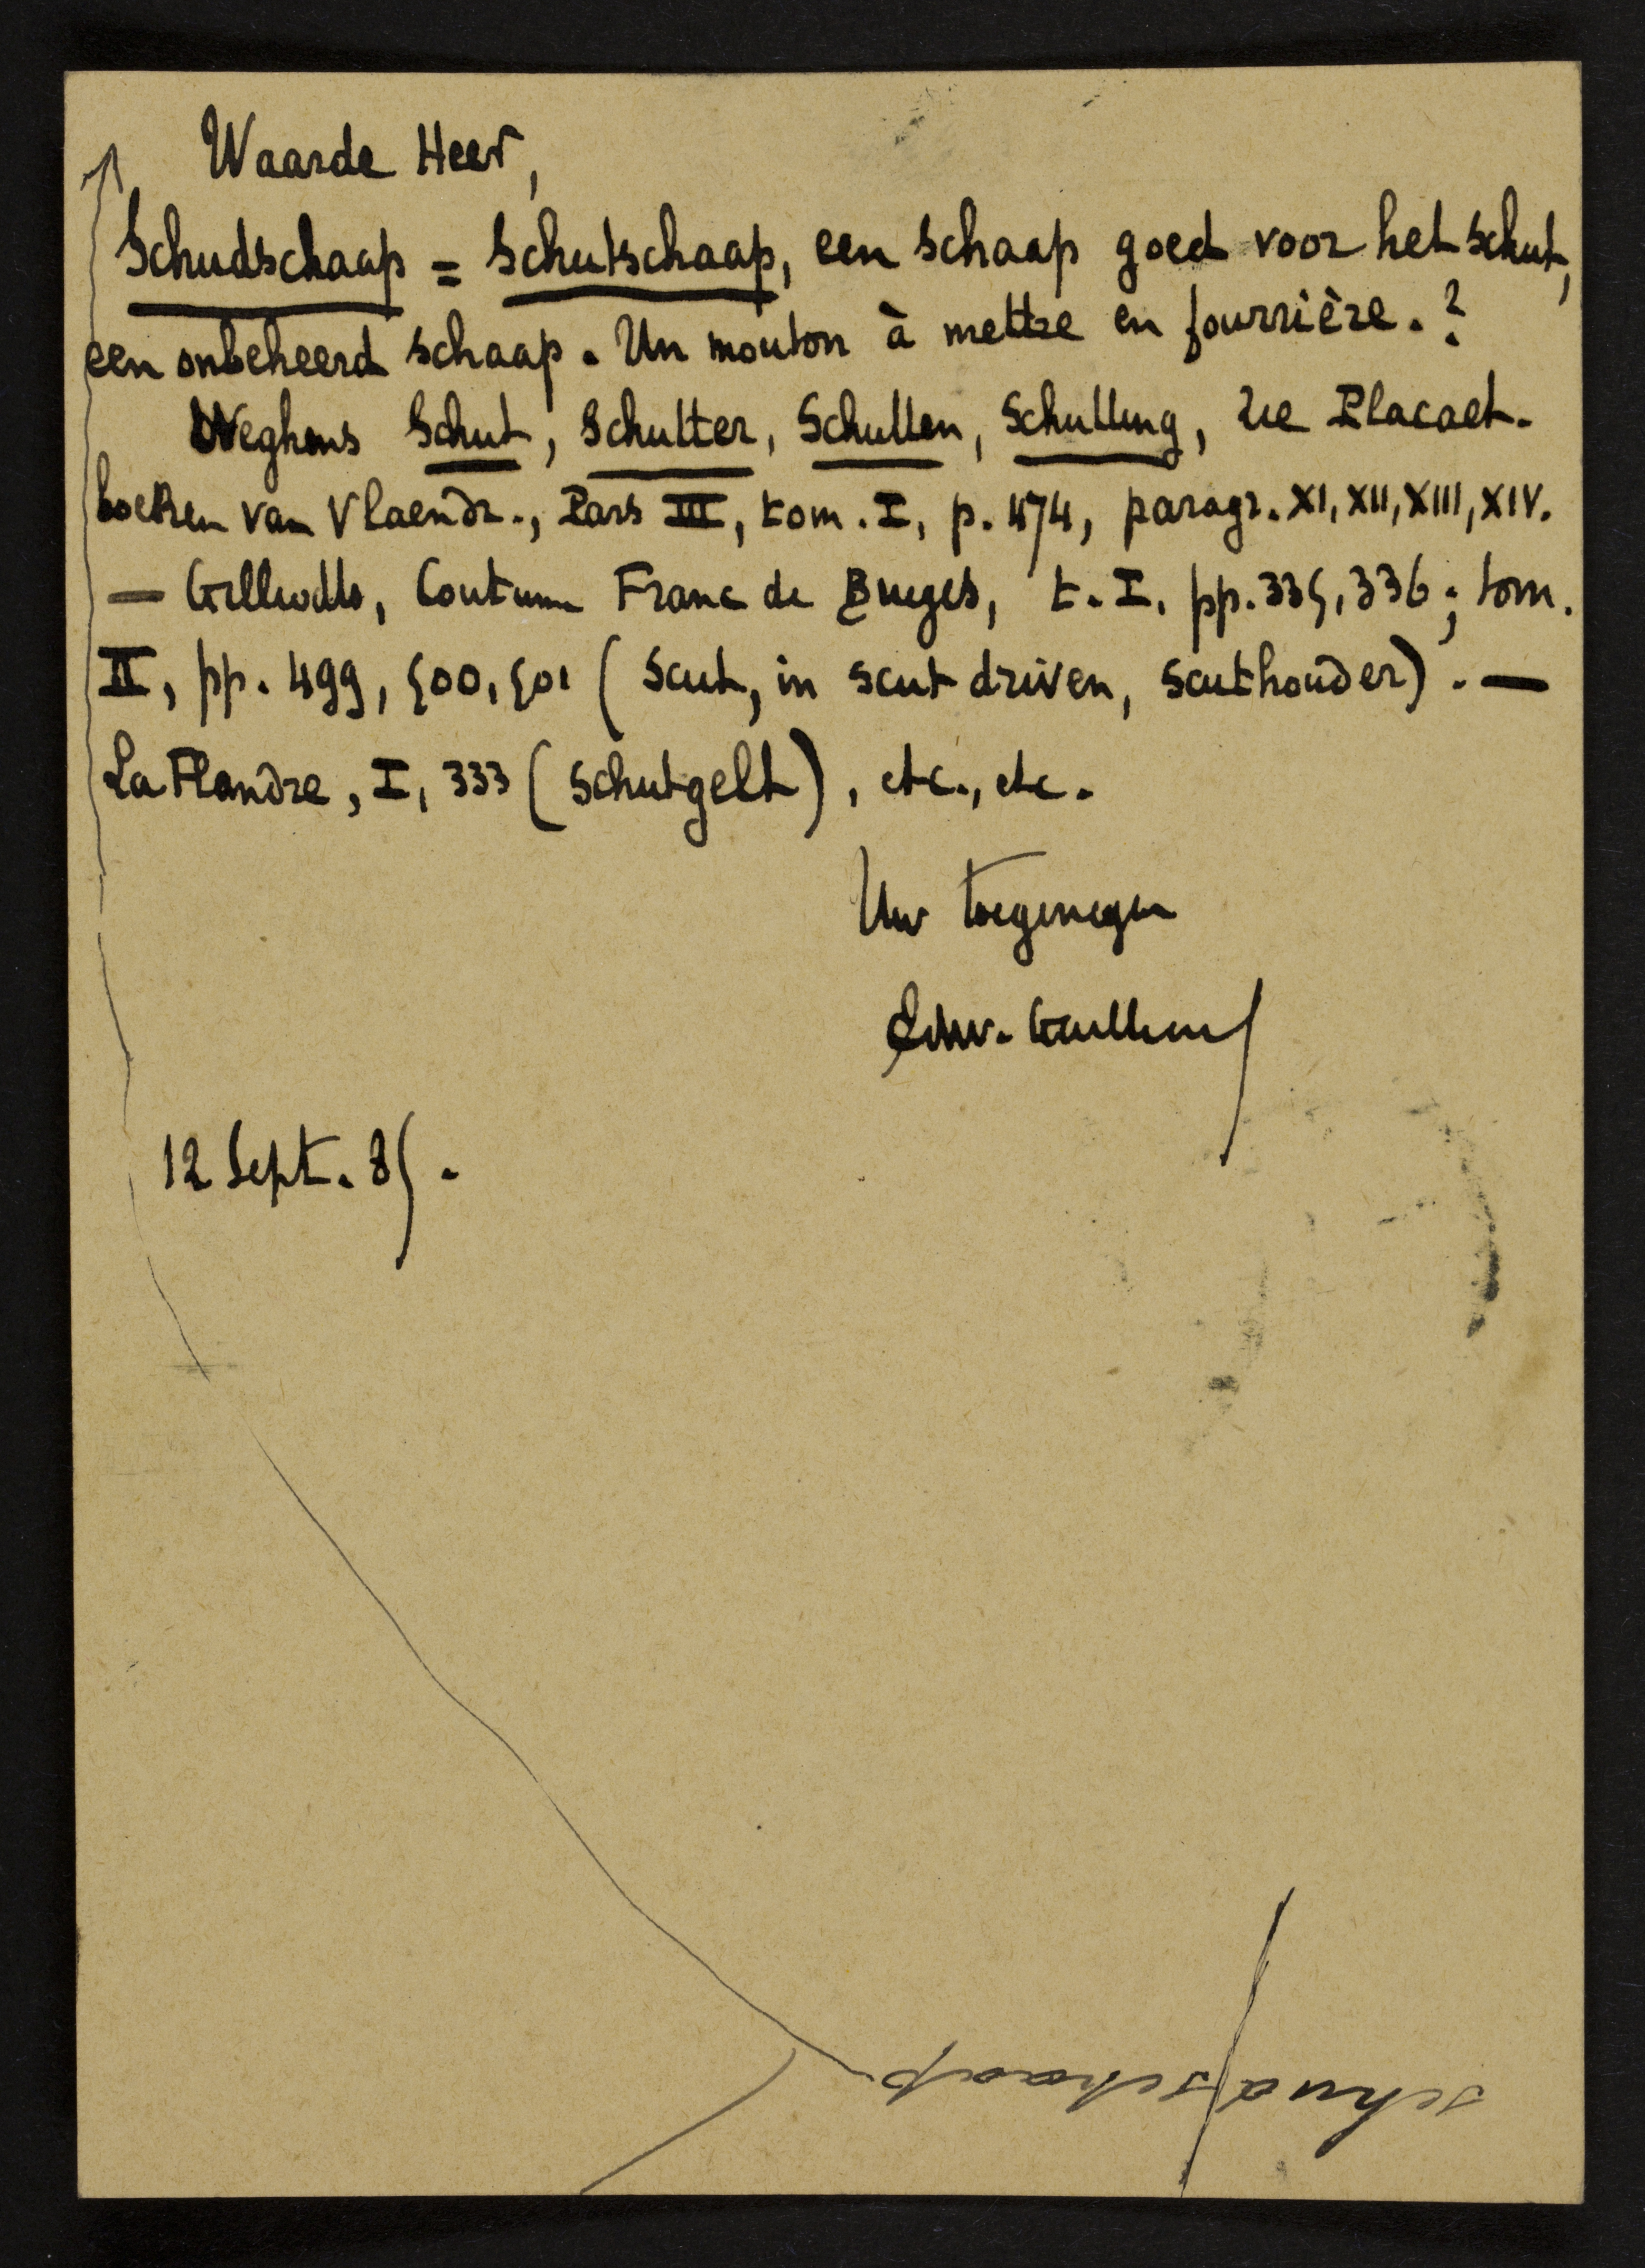 Waarde Heer,
Schudschaap = Schutschaap, een schaap goed voor het schut,
een onbeheerd schaap. Un mouton à mettre en fourrière.?
Weghens Schut, Schutter, Schutten, Schutting, zie Placaet-
boeken van Vlaendr., Pars III, tom. I, p. 474, paragr. XI, XII, XIII, XIV.
— Gilliodts, Coutume Franc de Bruges, t. I, pp. 335, 336; tom.
II, pp. 499, 500, 501 (Scut, in scut driven, scuthouder). —
La Flandre, I, 333 (schutgelt), etc., etc.
Uw toegenegen
Edw. Gailliard
12 Sept. 85.
schudschaap